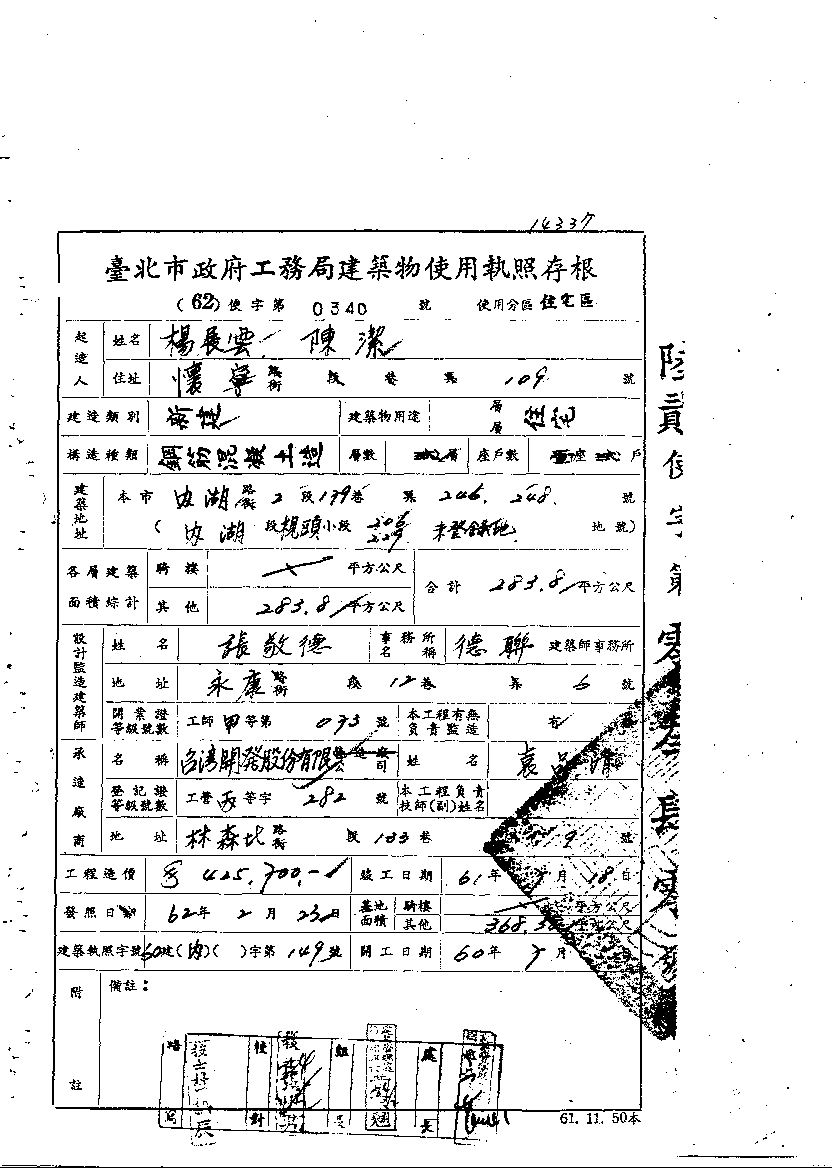 14337
臺北市政府工務局建築物使用執照存根
(62)使字第 0340 號 使用分區 住宅區
起造人 姓名 楊展雲 陳潔
住址 懷寧 路街 段 巷 弄 109 號
建造類別 新建 建築物用途 層層 住宅
構造種類 鋼筋混凝土造 層數 層 座戶數 座 戶
建築地址 本市 內湖 路街 2 段 139 巷 弄 246. 248. 號
( 內湖 段 視頭 小段 未登錄地 地號)
各層建築面積綜計 騎樓 平方公尺 合計 283.81 平方公尺
其他 283.81 平方公尺
設計監造建築師 姓名 張敬德 事務所名稱 德聯 建築師事務所
地址 永康 路街 段 12 巷 弄 6 號
開業證等級號數 工師 甲 等第 073 號 本工程有無負責監造 有
承造廠商 名稱 台湾開發股份有限 公司 姓名 袁
登記證等級號數 工營 等字 282 號 本工程負責技師(副)姓名
地址 林森北 路街 段 133 巷 9 號
工程造價 425,700.- 竣工日期 61 年 月 18 日
發照日期 62 年 2 月 23 日 基地面積 騎樓 平方公尺
其他 平方公尺
建築執照字號 60 建(內)( )字第 149 號 開工日期 60 年 月
附註 備註：
校對 組長 處長
61. 11. 50本
陸貳使字第零參肆零號